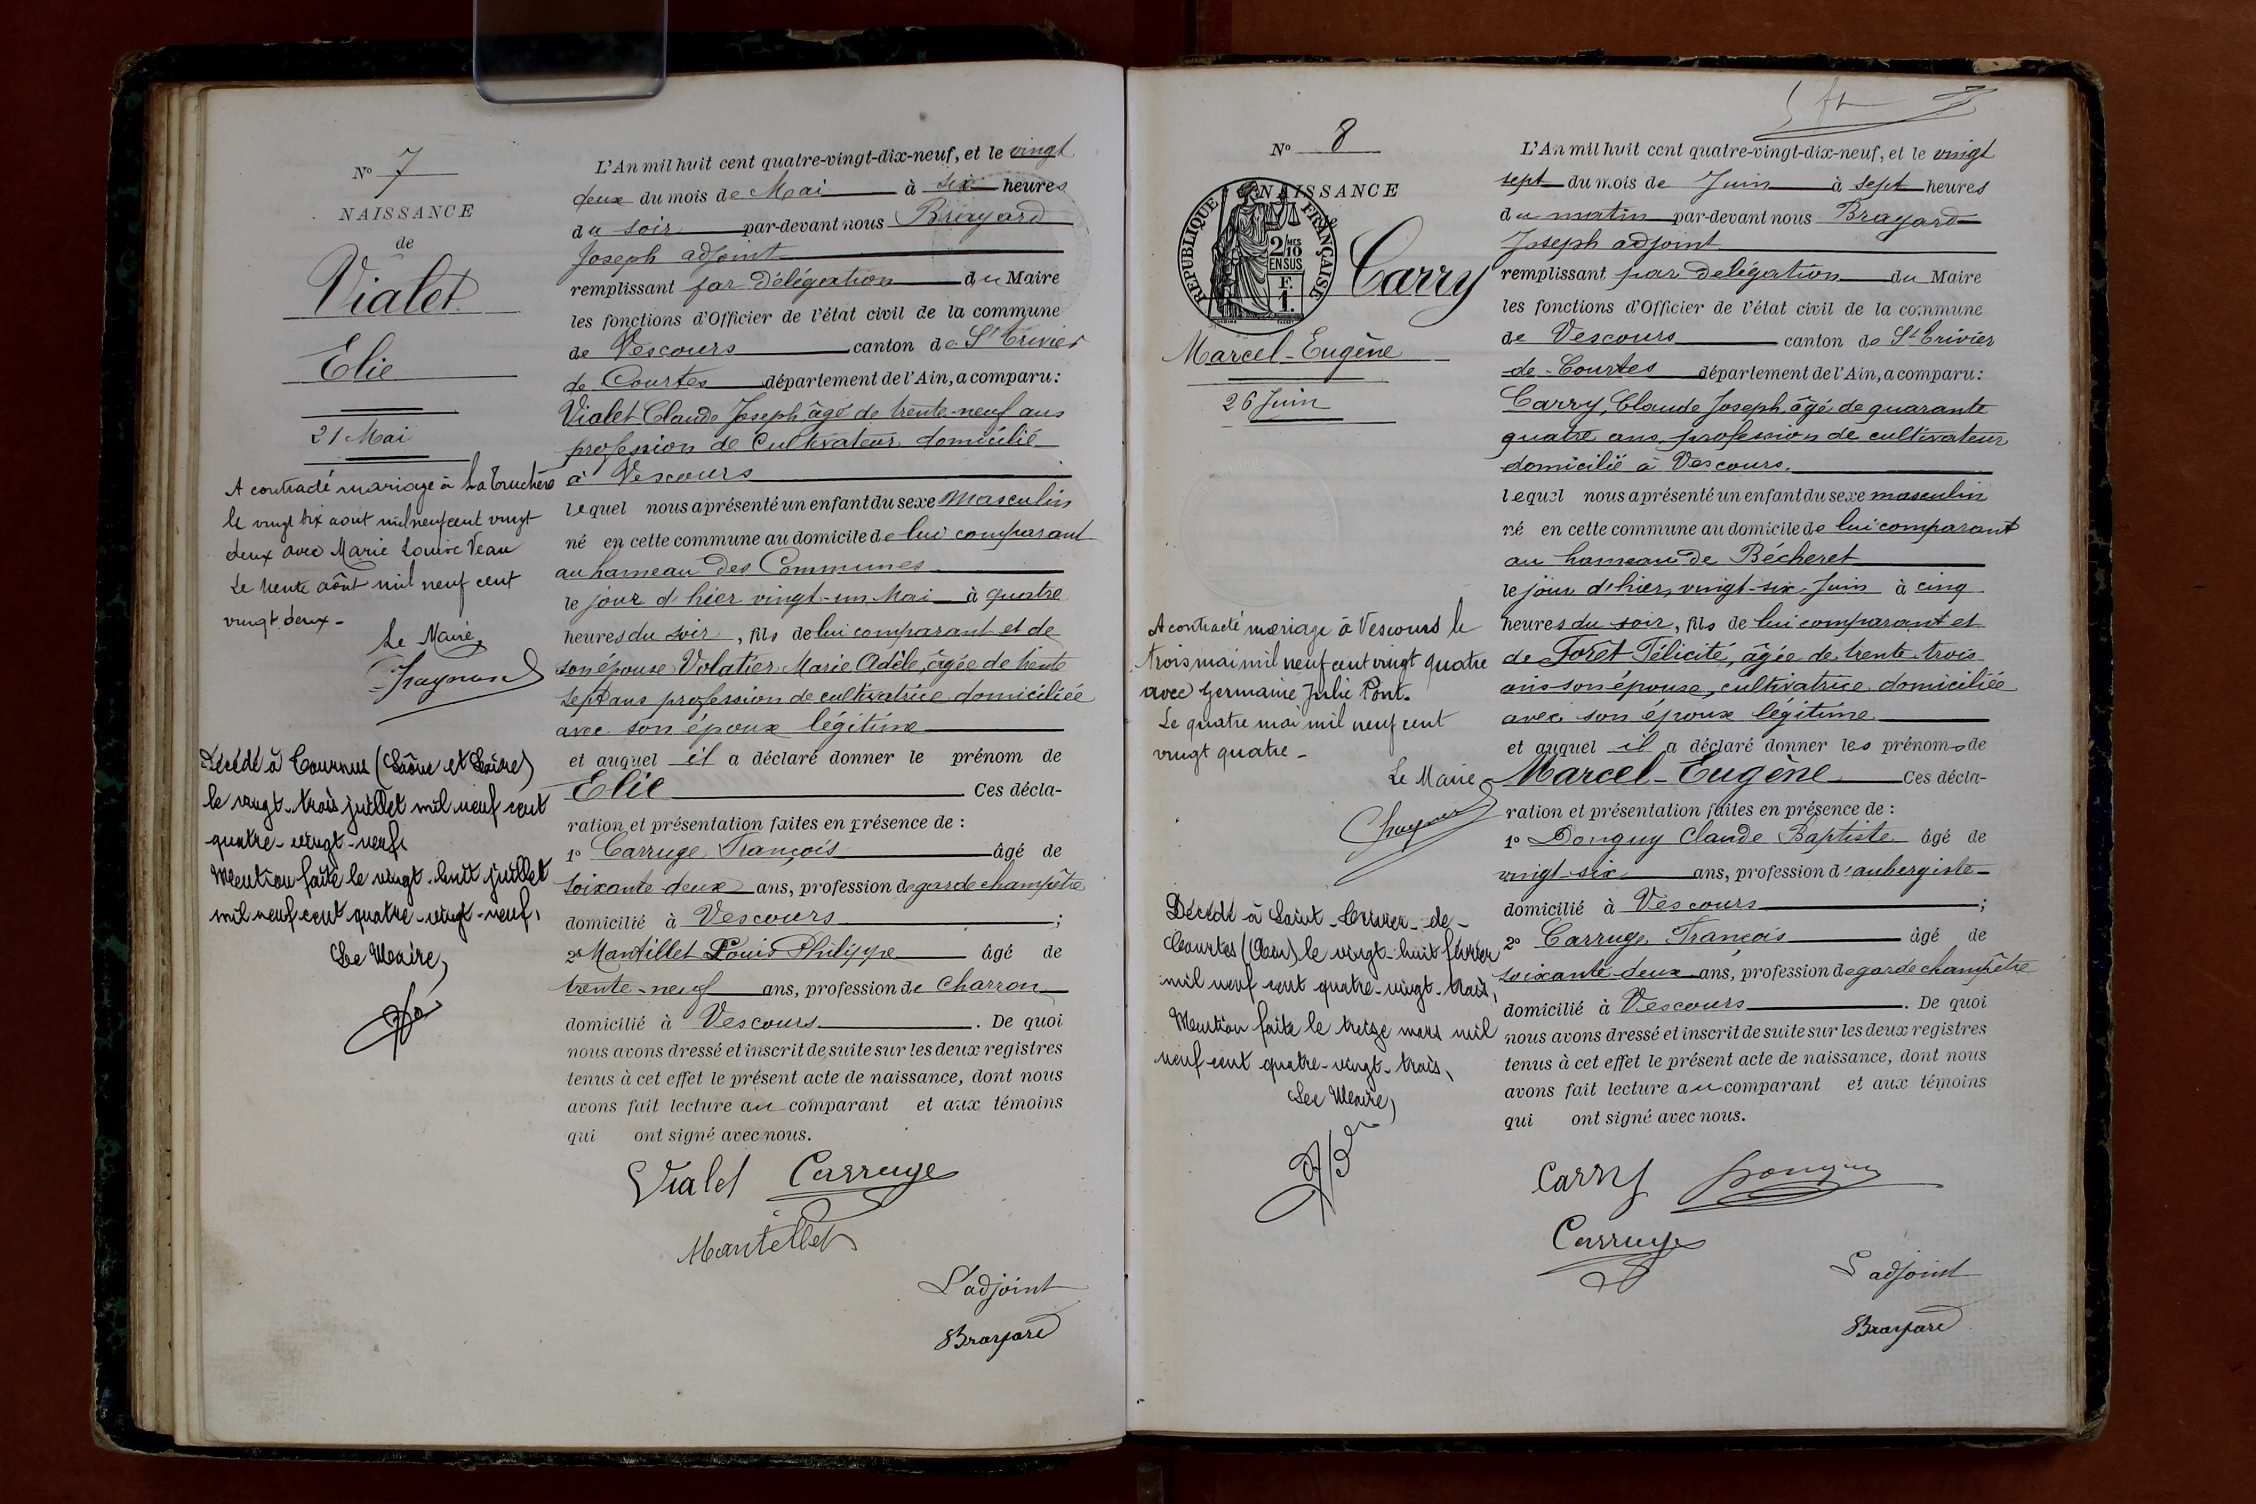 N° 7
NAISSANCE
de
Vialet
Elie
21 Mai
A contracté mariage à La Truchère
le vingt six aout mil neuf cent vingt
deux avec Marie Louise Veau
Le trente août mil neuf cent
vingt deux -
Le Maire,
Décédé à Tournus (Saône et Loire)
le vingt-trois juillet mil neuf cent
quatre-vingt-neuf.
Mention faite le vingt-huit juillet
mil neuf cent quatre-vingt-neuf.
Le Maire,
L'An mil huit cent quatre-vingt-dix-neuf, et le vingt
deux du mois de Mai à six heures
du soir par-devant nous Brayard
Joseph adjoint
remplissant par délégation du Maire
les fonctions d'Officier de l'état civil de la commune
de Vescours canton de St Trivier
de Courtes département de l'Ain, a comparu :
Vialet Claude Joseph âgé de trente-neuf ans
profession de cultivateur domicilié
à Vescours
lequel nous a présenté un enfant du sexe Masculin
né en cette commune au domicile de lui comparant
au hameau des Communes
le jour d'hier vingt-un Mai à quatre
heures du soir, fils de lui comparant et de
son épouse Volatier Marie Adèle, âgée de trente
sept ans profession de cultivatrice domiciliée
avec son époux légitime
et auquel il a déclaré donner le prénom de
Elie Ces décla-
ration et présentation faites en présence de :
1° Carruge François âgé de
soixante-deux ans, profession de garde champêtre
domicilié à Vescours ;
2° Mantillet Louis Philippe âgé de
trente-neuf ans, profession de charron
domicilié à Vescours . De quoi
nous avons dressé et inscrit de suite sur les deux registres
tenus à cet effet le présent acte de naissance, dont nous
avons fait lecture au comparant et aux témoins
qui ont signé avec nous.
Vialet Carruge
Mantellet
L'adjoint
Brayard
N° 8
NAISSANCE
de
RÉPUBLIQUE FRANÇAISE
2/10 MES
EN SUS
F.
1.
Carry
Marcel-Eugène
26 Juin
A contracté mariage à Vescours le
trois mai mil neuf cent vingt quatre
avec Germaine Julie Pont.
Le quatre mai mil neuf cent
vingt quatre -
Le Maire
Décédé à Saint-Trivier-de-
Courtes (Ain) le vingt-huit février
mil neuf cent quatre-vingt-trois,
Mention faite le treize mars mil
neuf cent quatre-vingt-trois,
Le Maire,
L'An mil huit cent quatre-vingt-dix-neuf, et le vingt
sept du mois de Juin à sept heures
du matin par-devant nous Brayard
Joseph adjoint
remplissant par délégation du Maire
les fonctions d'Officier de l'état civil de la commune
de Vescours canton de St Trivier
de Courtes département de l'Ain, a comparu :
Carry, Claude Joseph âgé de quarante
quatre ans, profession de cultivateur
domicilié à Vescours.
lequel nous a présenté un enfant du sexe masculin
né en cette commune au domicile de lui comparant
au hameau de Bécheret
le jour d'hier, vingt-six Juin à cinq
heures du soir, fils de lui comparant et
de Forêt Félicité, âgée de trente-trois
ans son épouse, cultivatrice domiciliée
avec son époux légitime
et auquel il a déclaré donner les prénoms de
Marcel-Eugène Ces décla-
ration et présentation faites en présence de :
1° Donguy Claude Baptiste âgé de
vingt-six ans, profession d'aubergiste
domicilié à Vescours ;
2° Carruge François âgé de
soixante-deux ans, profession de garde champêtre
domicilié à Vescours . De quoi
nous avons dressé et inscrit de suite sur les deux registres
tenus à cet effet le présent acte de naissance, dont nous
avons fait lecture au comparant et aux témoins
qui ont signé avec nous.
Carry Donguy
Carruge
L'adjoint
Brayard